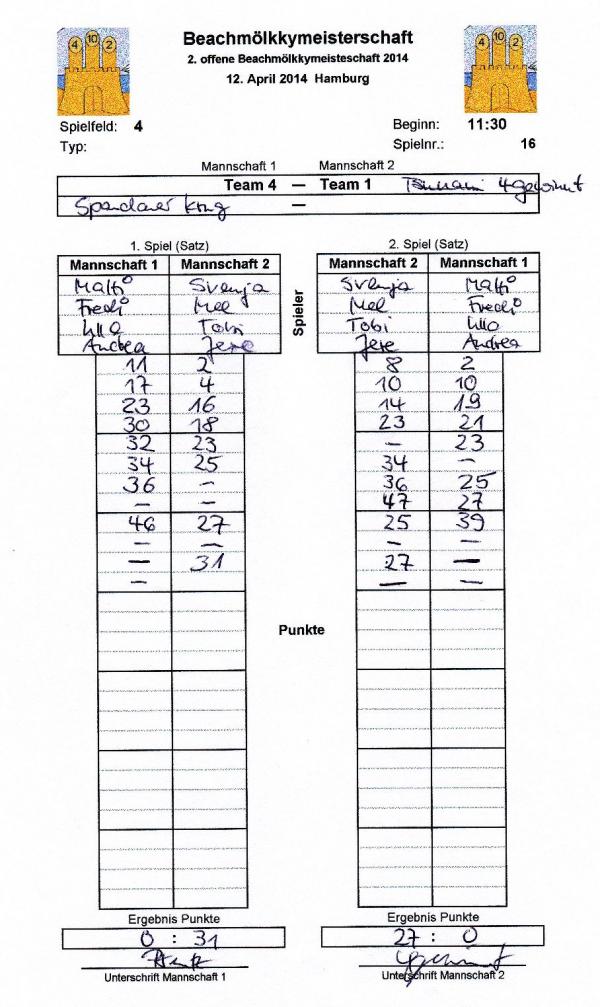 4 10 2
4 10 2
Beachmölkkymeisterschaft
2. offene Beachmölkkymeisteschaft 2014
12. April 2014 Hamburg
Spielfeld: 4
Beginn: 11:30
Typ:
Spielnr.: 16
Mannschaft 1 Mannschaft 2
Team 4 — Team 1 4gewinnt
Spandauer —
1. Spiel (Satz)
Mannschaft 1 Mannschaft 2
Svenja
Fredi Mel
Tobi
Andrea Jere
11 2
17 4
23 16
30 18
32 23
34 25
36 –
– –
46 27
– –
– 31
–
Ergebnis Punkte
0 : 31
Unterschrift Mannschaft 1
Spieler
Punkte
2. Spiel (Satz)
Mannschaft 2 Mannschaft 1
Svenja
Mel Fredi
Tobi
Jere Andrea
8 2
10 10
14 19
23 21
– 23
34 –
36 25
47 27
25 39
– –
27 –
– –
Ergebnis Punkte
27 : 0
Unterschrift Mannschaft 2